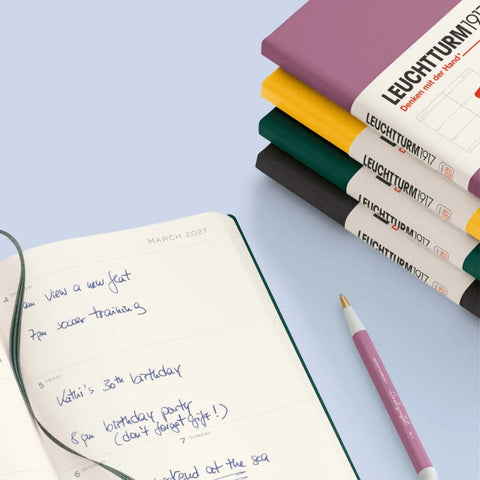 LEUCHTTURM1917
Denken mit der Hand*
LEUCHTTURM1917
LEUCHTTURM1917
LEUCHTTURM1917
MARCH 2027
4
view a new flat
7pm soccer training
5 FRIDAY
Kathi's 30th birthday
8pm birthday party
(don't forget gift!)
7 SUNDAY
6 SATURDAY
at the sea